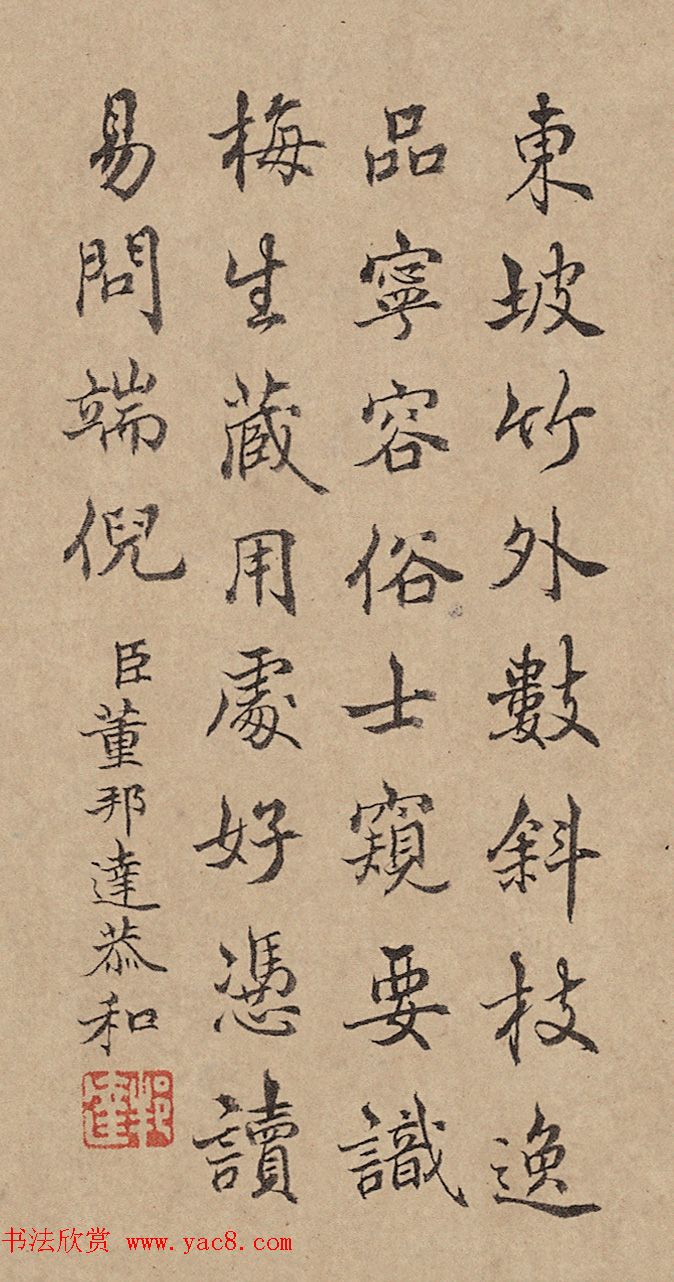 東坡竹外數斜枝逸
品寧容俗士窺要識
梅生蔵用處好憑讀
易問端倪
臣董邦達恭和
邦達
书法欣赏 www.yac8.com